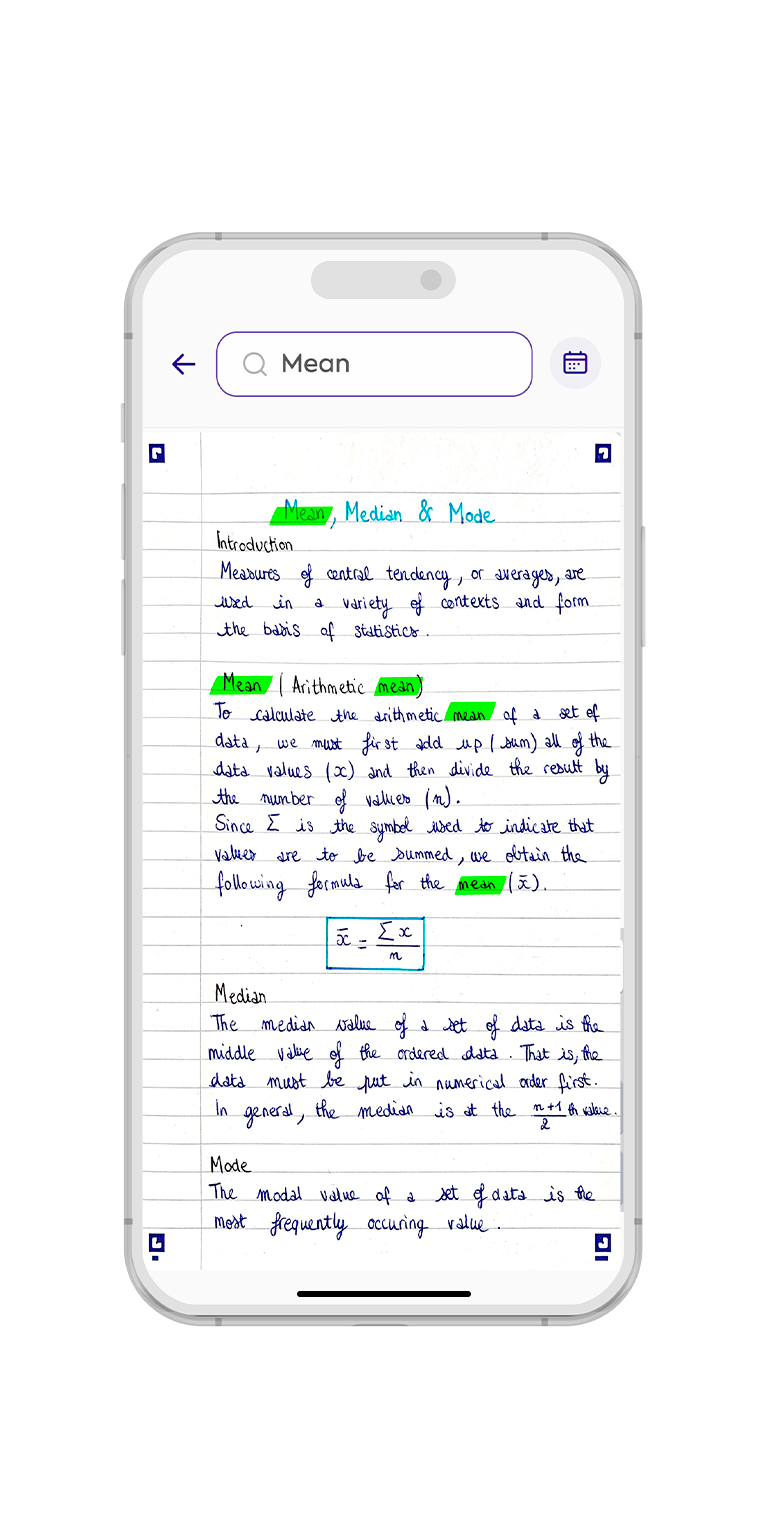 Mean
Mean, Median & Mode
Introduction
Measures of central tendency, or averages, are
used in a variety of contexts and form
the basis of statistics.
Mean (Arithmetic mean)
To calculate the arithmetic mean of a set of
data, we must first add up (sum) all of the
data values (x) and then divide the result by
the number of values (n).
Since Σ is the symbol used to indicate that
values are to be summed, we obtain the
following formula for the mean (x̄).
x̄ = Σx / n
Median
The median value of a set of data is the
middle value of the ordered data. That is, the
data must be put in numerical order first.
In general, the median is at the (n+1)/2 th value.
Mode
The modal value of a set of data is the
most frequently occuring value.